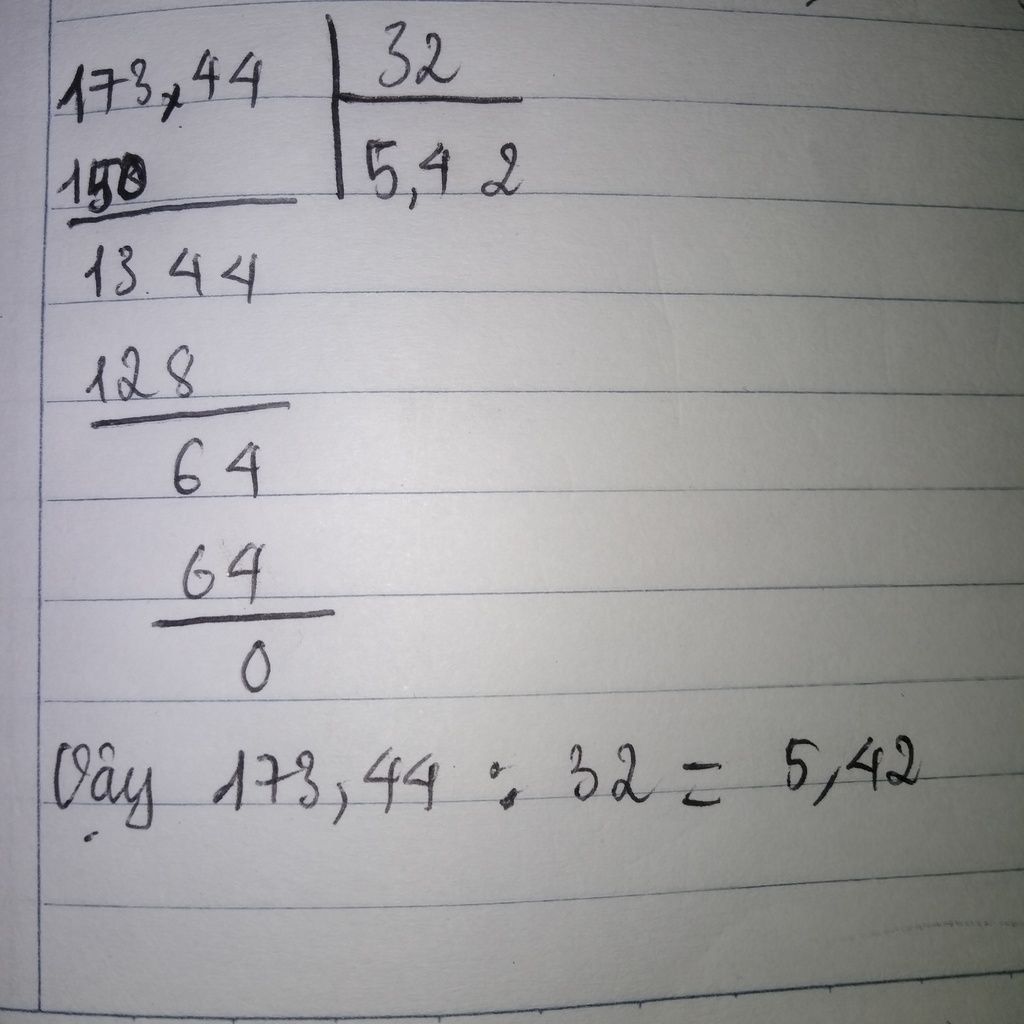 173,44 32
5,42
13 44
128
64
64
0
Vậy 173,44 : 32 = 5,42